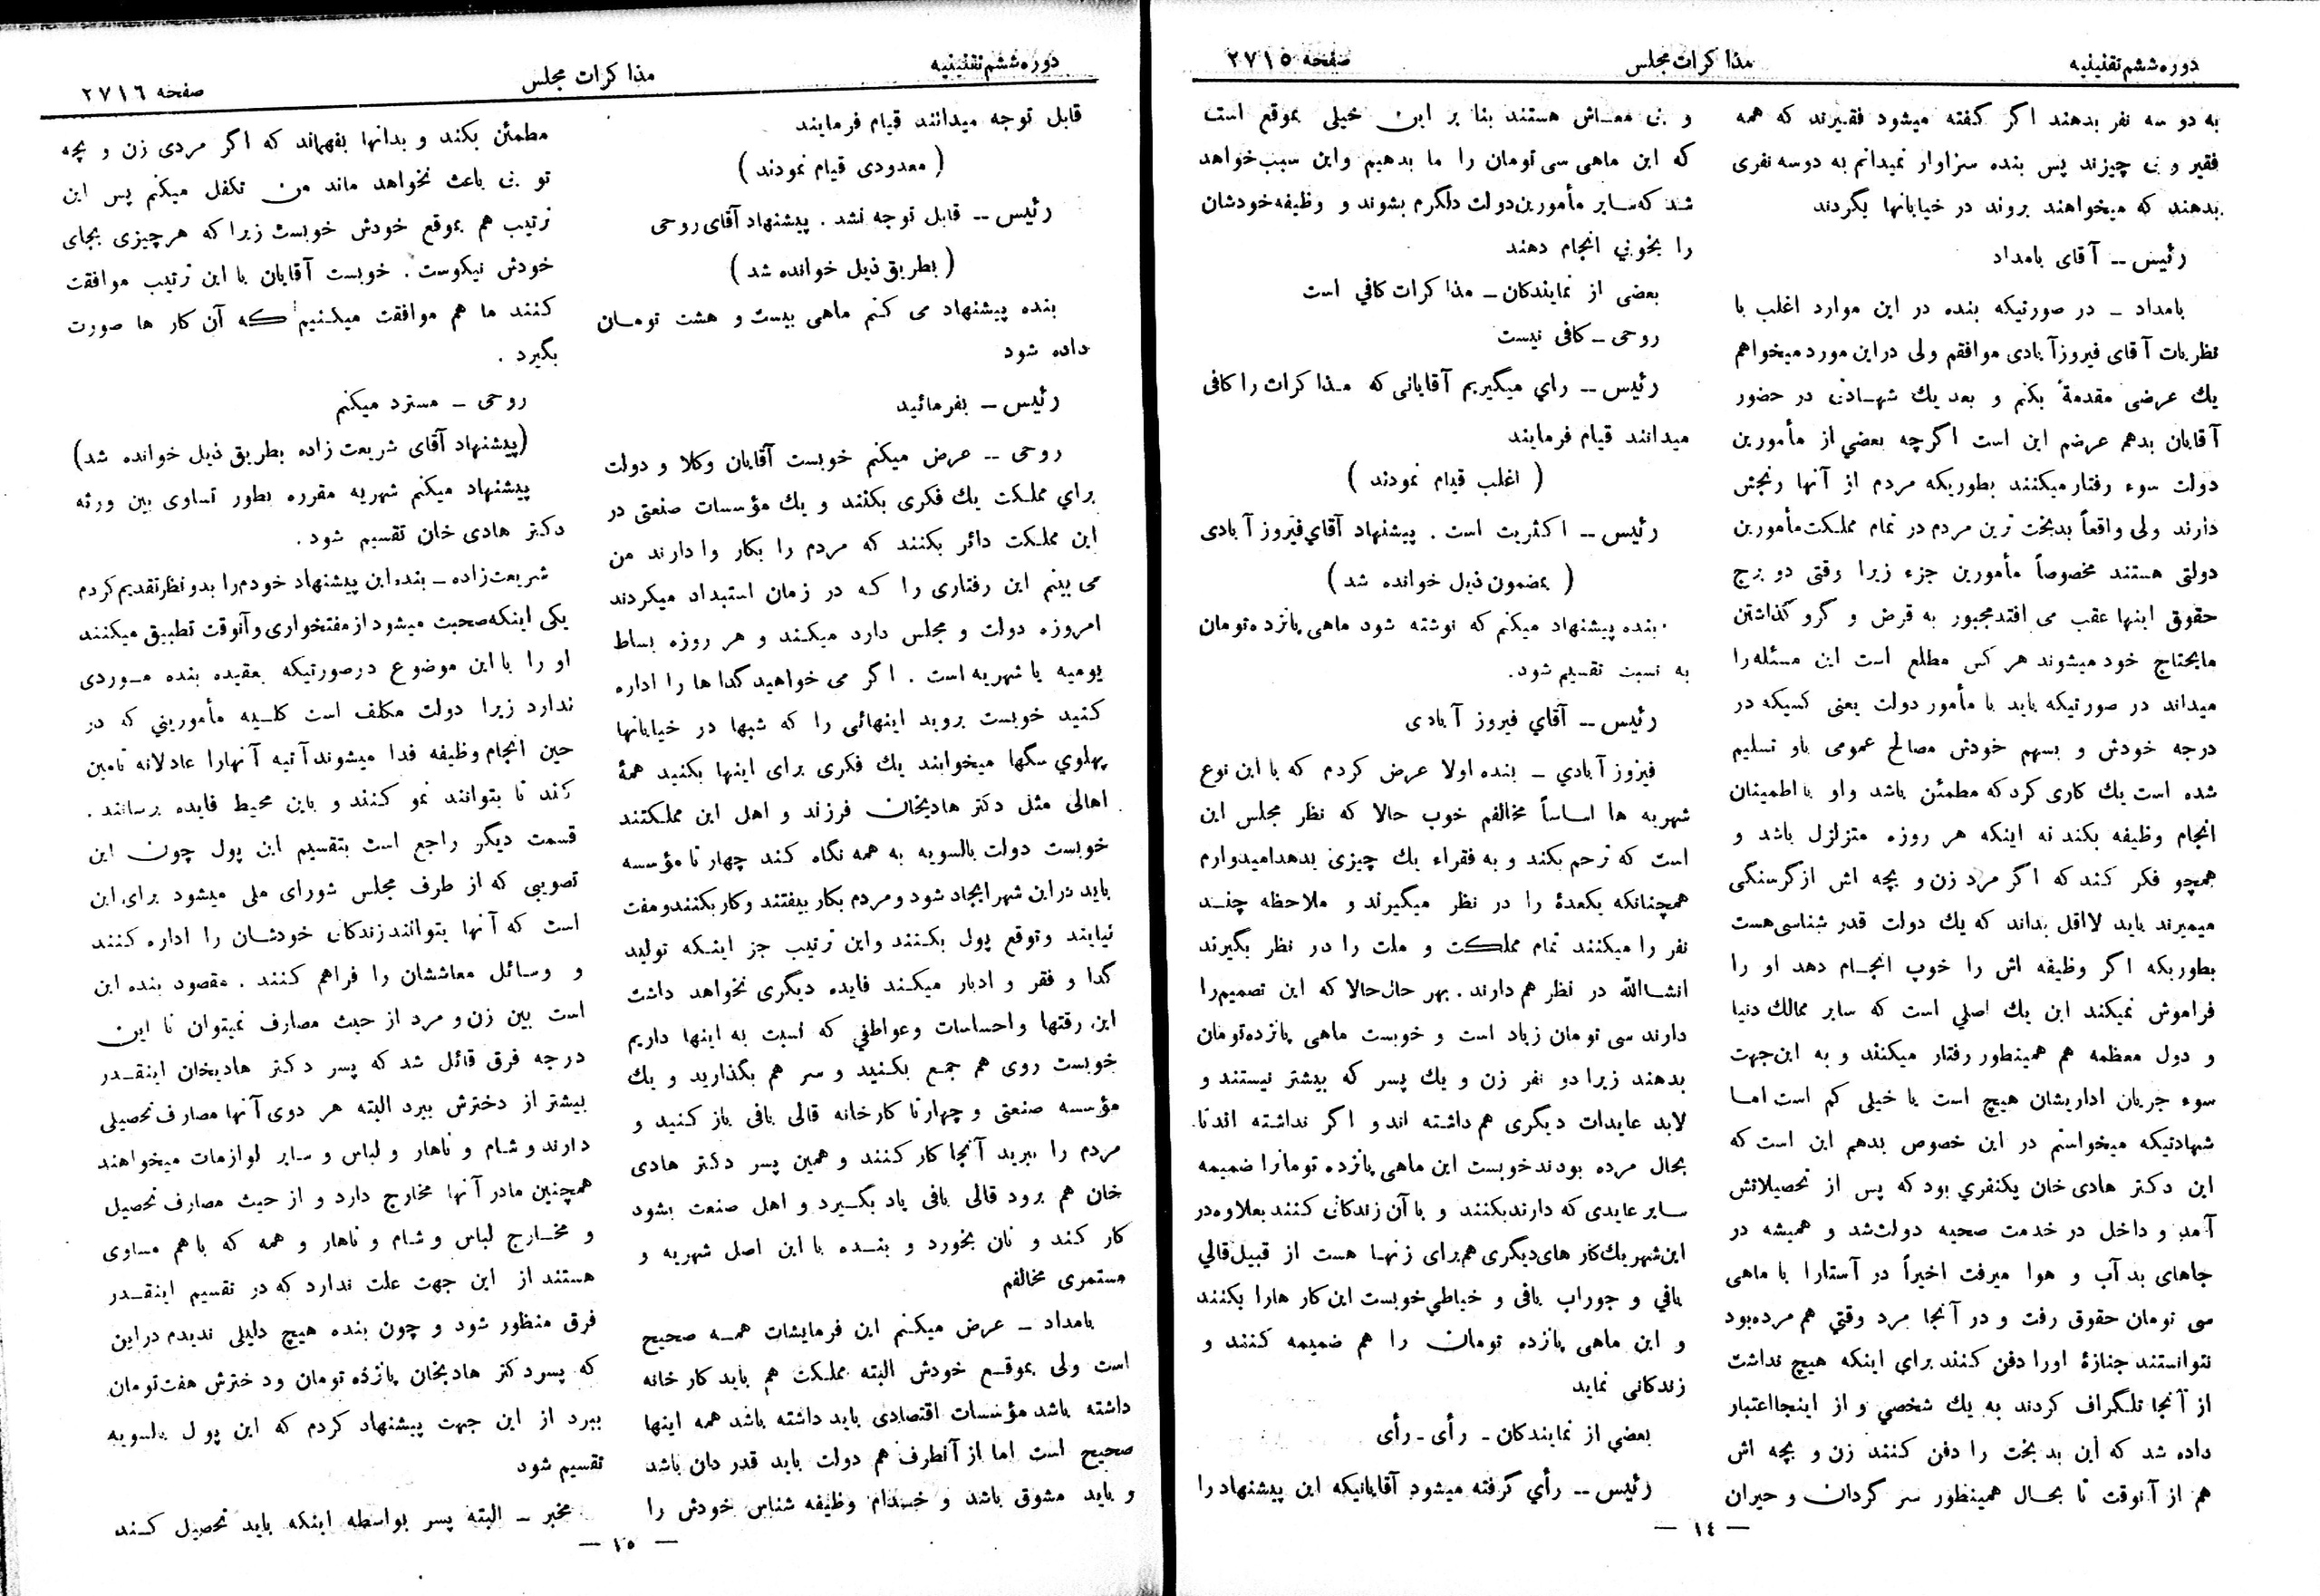 دوره ششم تقنینیه
مذاکرات مجلس
صفحه ۲۷۱۵
به دو سه نفر بدهند اگر گفته میشود فقیرند که همه
فقیر و بی چیزند پس بنده سزاوار نمیدانم به دوسه نفری
بدهند که میخواهند بروند در خیابانها بگردند
رئیس -- آقای بامداد
بامداد - در صورتیکه بنده در این موارد اغلب با
نظریات آقای فیروزآبادی موافقم ولی دراین مورد میخواهم
یك عرضی مقدمةً بکنم و بعد یك شهادتی در حضور
آقایان بدهم عرضم این است اگرچه بعضي از مأمورین
دولت سوء رفتار میکنند بطوریکه مردم از آنها رنجش
دارند ولی واقعاً بدبخت ترین مردم در تمام مملکت مأمورین
دولتی هستند مخصوصاً مأمورین جزء زیرا وقتی دو برج
حقوق اینها عقب می افتد مجبور به قرض و گرو گذاشتن
مایحتاج خود میشوند هر کس مطلع است این مسئله را
میداند در صورتیکه باید با مأمور دولت یعنی کسیکه در
درجه خودش و بسهم خودش مصالح عمومی باو تسلیم
شده است یك کاری کرد که مطمئن باشد واو با اطمینان
انجام وظیفه بکند نه اینکه هر روزه متزلزل باشد و
همچو فکر کند که اگر مرد زن و بچه اش از گرسنگی
میمیرند باید لااقل بداند که یك دولت قدر شناسی هست
بطوریکه اگر وظیفه اش را خوب انجام دهد او را
فراموش نمیکند این یك اصلي است که سایر ممالك دنیا
و دول معظمه هم همینطور رفتار میکنند و به این جهت
سوء جریان اداریشان هیچ است یا خیلی کم است اما
شهادتیکه میخواستم در این خصوص بدهم این است که
این دکتر هادی خان یکنفري بود که پس از تحصیلاتش
آمد و داخل در خدمت صحیه دولت شد و همیشه در
جاهای بد آب و هوا میرفت اخیراً در آستارا با ماهی
سی تومان حقوق رفت و در آنجا مرد وقتي هم مرده بود
نتوانستند جنازۀ اورا دفن کنند براي اینکه هیچ نداشت
از آنجا تلگراف کردند به یك شخصي و از اینجا اعتبار
داده شد که این بد بخت را دفن کنند زن و بچه اش
هم از آنوقت تا بحال همینطور سر گردان و حیران
و بی معاش هستند بنا بر این خیلی بموقع است
که این ماهی سی تومان را ما بدهیم واین سبب خواهد
شد که سایر مأمورین دولت دلگرم بشوند و وظیفه خودشان
را بخوبي انجام دهند
بعضی از نمایندگان - مذاکرات کافي است
روحی - کافی نیست
رئیس -- راي میگیریم آقایانی که مذاکرات را کافی
میدانند قیام فرمایند
( اغلب قیام نمودند )
رئیس -- اکثریت است . پیشنهاد آقاي فیروز آبادی
( بمضمون ذیل خوانده شد )
بنده پیشنهاد میکنم که نوشته شود ماهی پانزده تومان
به نسبت تقسیم شود.
رئیس -- آقاي فیروز آبادی
فیروز آبادي - بنده اولا عرض کردم که با این نوع
شهریه ها اساساً مخالفم خوب حالا که نظر مجلس این
است که ترحم بکند و به فقراء یك چیزی بدهد امیدوارم
همچنانکه یکعدۀ را در نظر میگیرند و ملاحظه چند
نفر را میکنند تمام مملکت و ملت را در نظر بگیرند
انشاالله در نظر هم دارند . بهر حال حالا که این تصمیم را
دارند سی تومان زیاد است و خوبست ماهی پانزده تومان
بدهند زیرا دو نفر زن و یك پسر که بیشتر نیستند و
لابد عایدات دیگری هم داشته اند و اگر نداشته اند تا
بحال مرده بودند خوبست این ماهی پانزده تومانرا ضمیمه
سایر عایدی که دارند بکنند و با آن زندگانی کنند بعلاوه در
این شهر یك کار های دیگری هم برای زنها هست از قبیل قالي
بافي و جوراب بافی و خیاطي خوبست این کار هارا بکنند
و این ماهی پانزده تومان را هم ضمیمه کنند و
زندگانی نماید
بعضي از نمایندگان - رأی - رأی
رئیس -- رأي گرفته میشود آقایانیکه این پیشنهاد را
— ١٤ —
دوره ششم تقنینیه
مذاکرات مجلس
صفحه ۲۷۱٦
قابل توجه میدانند قیام فرمایند
( معدودی قیام نمودند )
رئیس -- قابل توجه نشد . پیشنهاد آقای روحی
( بطریق ذیل خوانده شد )
بنده پیشنهاد می کنم ماهی بیست و هشت تومان
داده شود
رئیس - بفرمائید
روحی -- عرض میکنم خوبست آقایان وکلا و دولت
براي مملکت یك فکری بکنند و یك مؤسسات صنعتی در
این مملکت دائر بکنند که مردم را بکار وا دارند من
می بینم این رفتاری را که در زمان استبداد میکردند
امروزه دولت و مجلس دارد میکند و هر روزه بساط
یومیه یا شهریه است . اگر می خواهید گدا ها را اداره
کنید خوبست بروید اینهائی را که شبها در خیابانها
پهلوي سگها میخوابند یك فکری برای اینها بکنید همۀ
اهالی مثل دکتر هادیخان فرزند و اهل این مملکتند
خوبست دولت بالسویه به همه نگاه کند چهار تا مؤسسه
باید در این شهر ایجاد شود و مردم بکار بیفتند و کار بکنند و مفت
نیابند و توقع پول بکنند واین ترتیب جز اینکه تولید
گدا و فقر و ادبار میکند فایده دیگری نخواهد داشت
این رقتها و احساسات و عواطفي که نسبت به اینها داریم
خوبست روی هم جمع بکنید و سر هم بگذارید و یك
مؤسسه صنعتی و چهار تا کارخانه قالی بافی باز کنید و
مردم را ببرید آنجا کار کنند و همین پسر دکتر هادی
خان هم برود قالی بافی یاد بگیرد و اهل صنعت بشود
کار کند و نان بخورد و بنده با این اصل شهریه و
مستمری مخالفم
بامداد - عرض میکنم این فرمایشات همه صحیح
است ولی بموقع خودش البته مملکت هم باید کار خانه
داشته باشد مؤسسات اقتصادی باید داشته باشد همه اینها
صحیح است اما از آنطرف هم دولت باید قدر دان باشد
و باید مشوق باشد و خدام وظیفه شناس خودش را
مطمئن بکند و بدانها بفهماند که اگر مردی زن و بچه
تو بی باعث نخواهد ماند من تکفل میکنم پس این
ترتیب هم بموقع خودش خوبست زیرا که هرچیزی بجای
خودش نیکوست . خوبست آقایان با این ترتیب موافقت
کنند ما هم موافقت میکنیم که آن کار ها صورت
بگیرد .
روحی - مسترد میکنم
(پیشنهاد آقای شریعت زاده بطریق ذیل خوانده شد)
پیشنهاد میکنم شهریه مقرره بطور تساوی بین ورثه
دکتر هادی خان تقسیم شود .
شریعت زاده - بنده این پیشنهاد خودم را بدو نظر تقدیم کردم
یکی اینکه صحبت میشود از مفتخواری و آنوقت تطبیق میکنند
او را با این موضوع درصورتیکه بعقیده بنده موردی
ندارد زیرا دولت مکلف است کلیه مأموریني که در
حین انجام وظیفه فدا میشوند آتیه آنهارا عادلانه تامین
کند تا بتوانند نمو کنند و باین محیط فایده برسانند .
قسمت دیگر راجع است بتقسیم این پول چون این
تصویبی که از طرف مجلس شورای ملی میشود برای این
است که آنها بتوانند زندگانی خودشان را اداره کنند
و وسائل معاششان را فراهم کنند . مقصود بنده این
است بین زن و مرد از حیث مصارف نمیتوان تا این
درجه فرق قائل شد که پسر دکتر هادیخان اینقدر
بیشتر از دخترش ببرد البته هر دوی آنها مصارف تحصیلی
دارند و شام و ناهار و لباس و سایر لوازمات میخواهند
همچنین مادر آنها مخارج دارد و از حیث مصارف تحصیل
و مخارج لباس و شام و ناهار و همه که باهم مساوی
هستند از این جهت علت ندارد که در تقسیم اینقدر
فرق منظور شود و چون بنده هیچ دلیلی ندیدم دراین
که پسر دکتر هادیخان پانزده تومان و دخترش هفت تومان
ببرد از این جهت پیشنهاد کردم که این پول بالسویه
تقسیم شود
مخبر - البته پسر بواسطه اینکه باید تحصیل کند
— ١٥ —